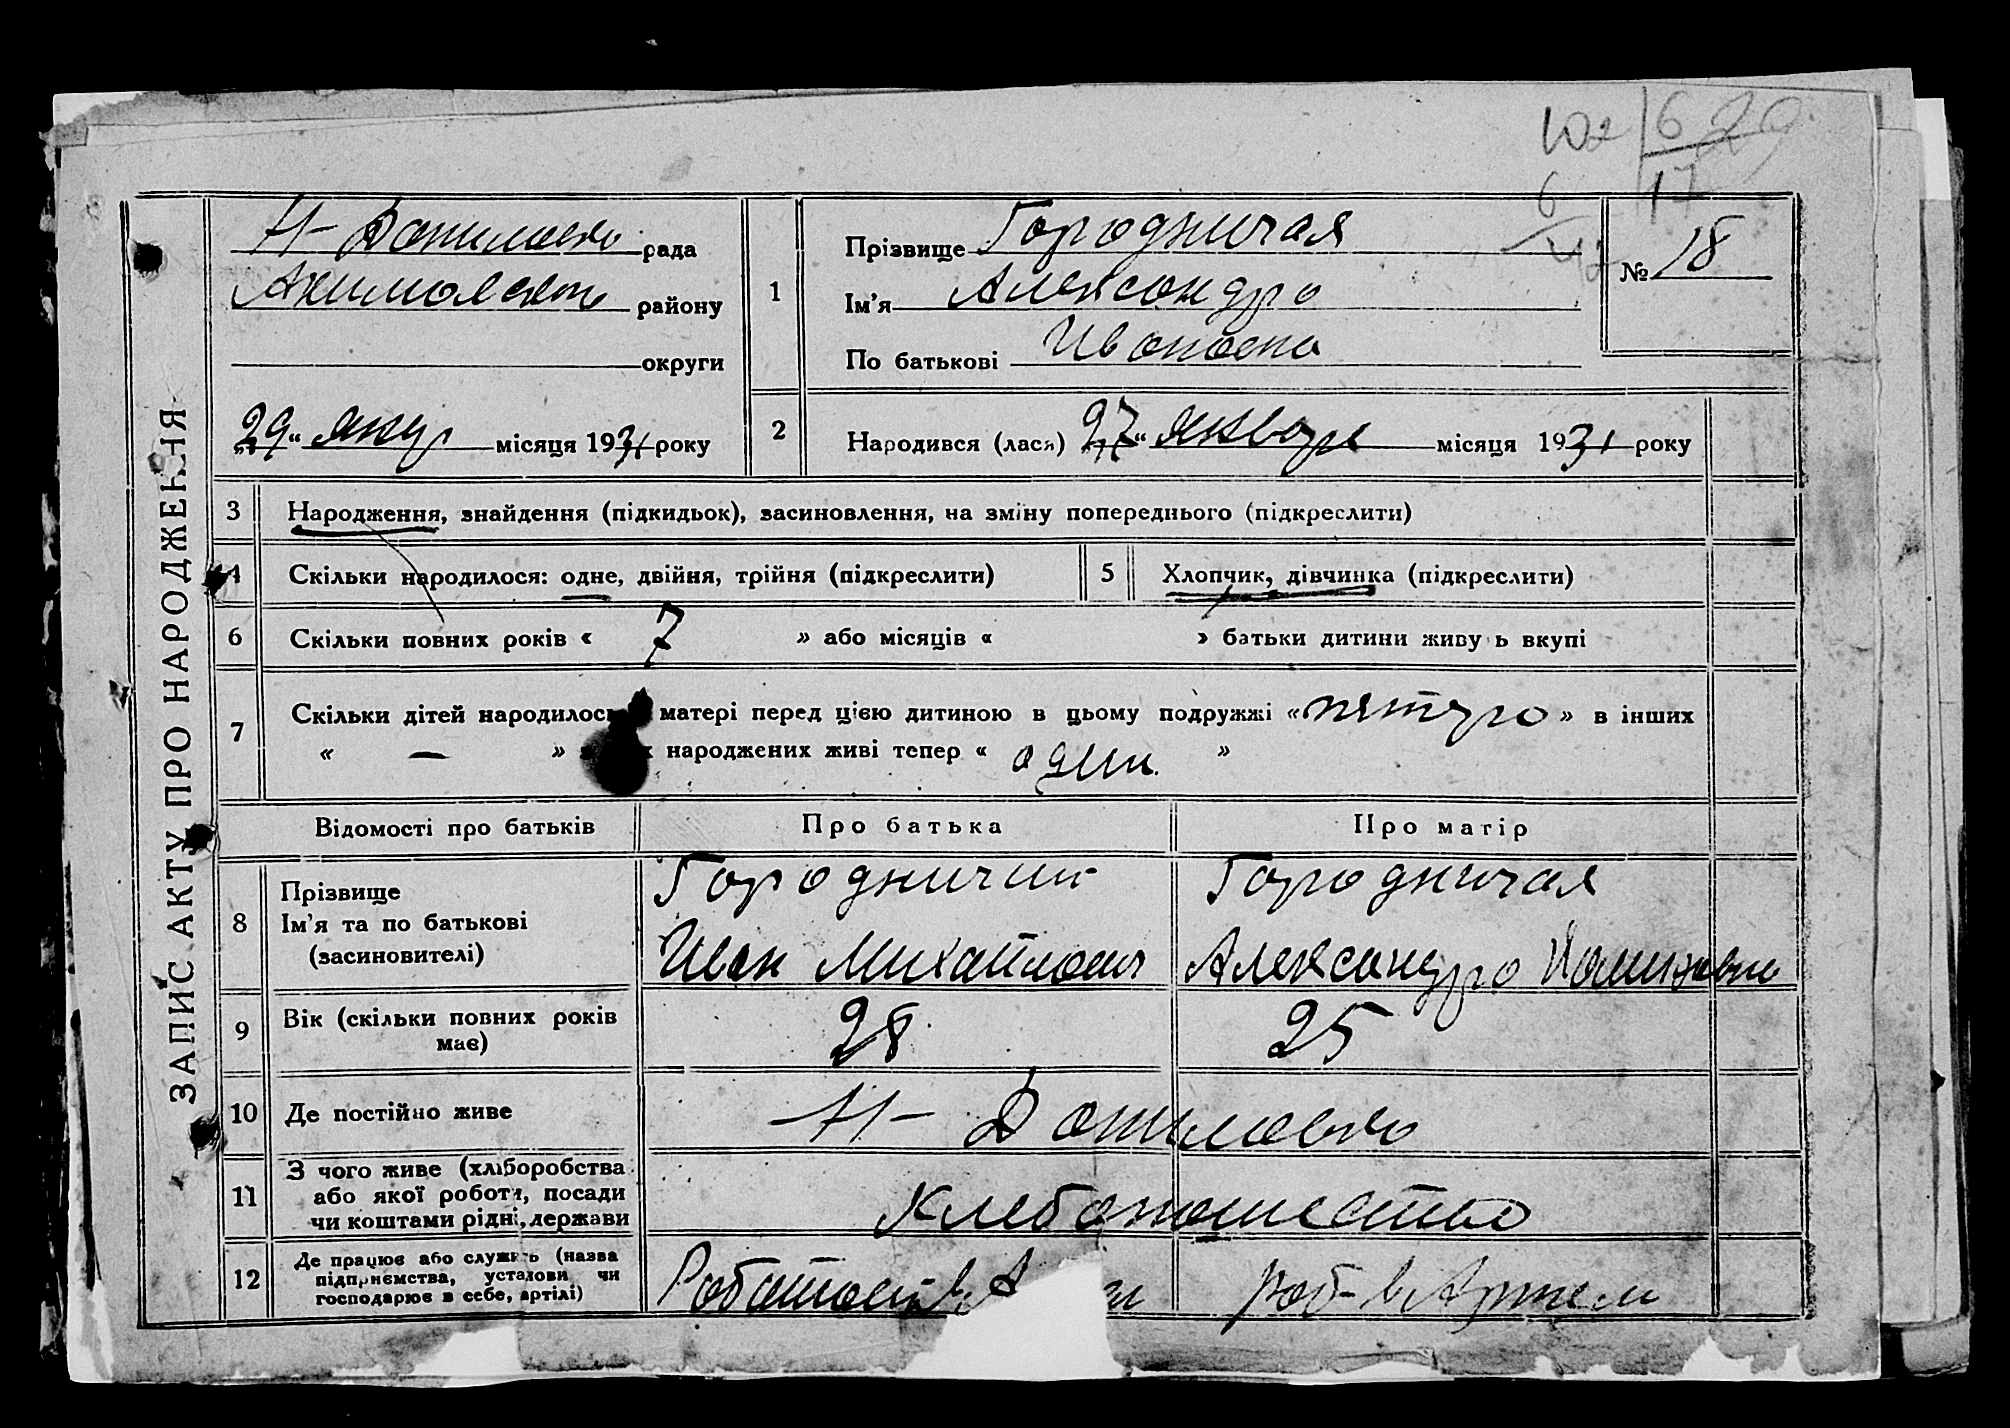 102 629
17
6
ЗАПИС АКТУ ПРО НАРОДЖЕННЯ
Н-Даниловско рада
Акимовского району
округи
„29“ янвр місяця 1931 року
1
Прізвище Городничая
Ім'я Александра
По батькові Ивановна
№ 18
2
Народився (лася) „27“ января місяця 1931 року
3 Народження, знайдення (підкидьок), засиновлення, на зміну попереднього (підкреслити)
4 Скільки народилося: одне, двійня, трійня (підкреслити)
5 Хлопчик, дівчинка (підкреслити)
6 Скільки повних років « 7 » або місяців « » батьки дитини живуть вкупі
7 Скільки дітей народилось матері перед цією дитиною в цьому подружжі «пятеро» в інших
« — » народжених живі тепер « один »
Відомості про батьків Про батька Про матір
8 Прізвище Ім'я та по батькові (засиновителі)
Городничий Городничая
Иван Михайлович Александра
9 Вік (скільки повних років має) 28 25
10 Де постійно живе Н-Даниловка
11 З чого живе (хліборобства або якої роботи, посади чи коштами рідні, держави
Хлебопашество
12 Де працює або служить (назва підприємства, установи чи господарює в себе, артілі)
Работает в раб- в Артели